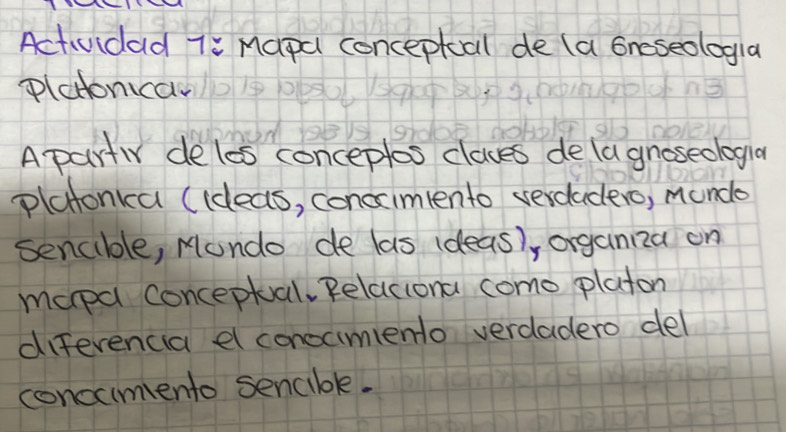 Actividad 1: Mapa conceptual de la Gnoseologia
Platonica.
A partir de los conceptos claves de la gnoseologia
platonica (ideas, conocimiento verdadero, Mundo
sencible, Mundo de las ideas), organiza un
mapa conceptual. Relaciona como platon
diferencia el conocimiento verdadero del
conocimiento sencible.